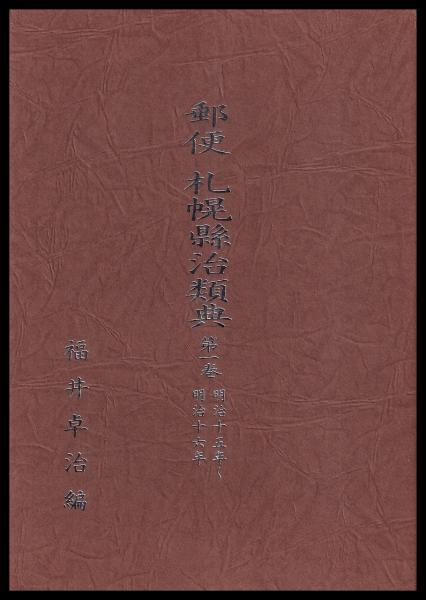 郵便 札幌縣治類典 第一巻
明治十五年〜
明治十六年
福井卓治編